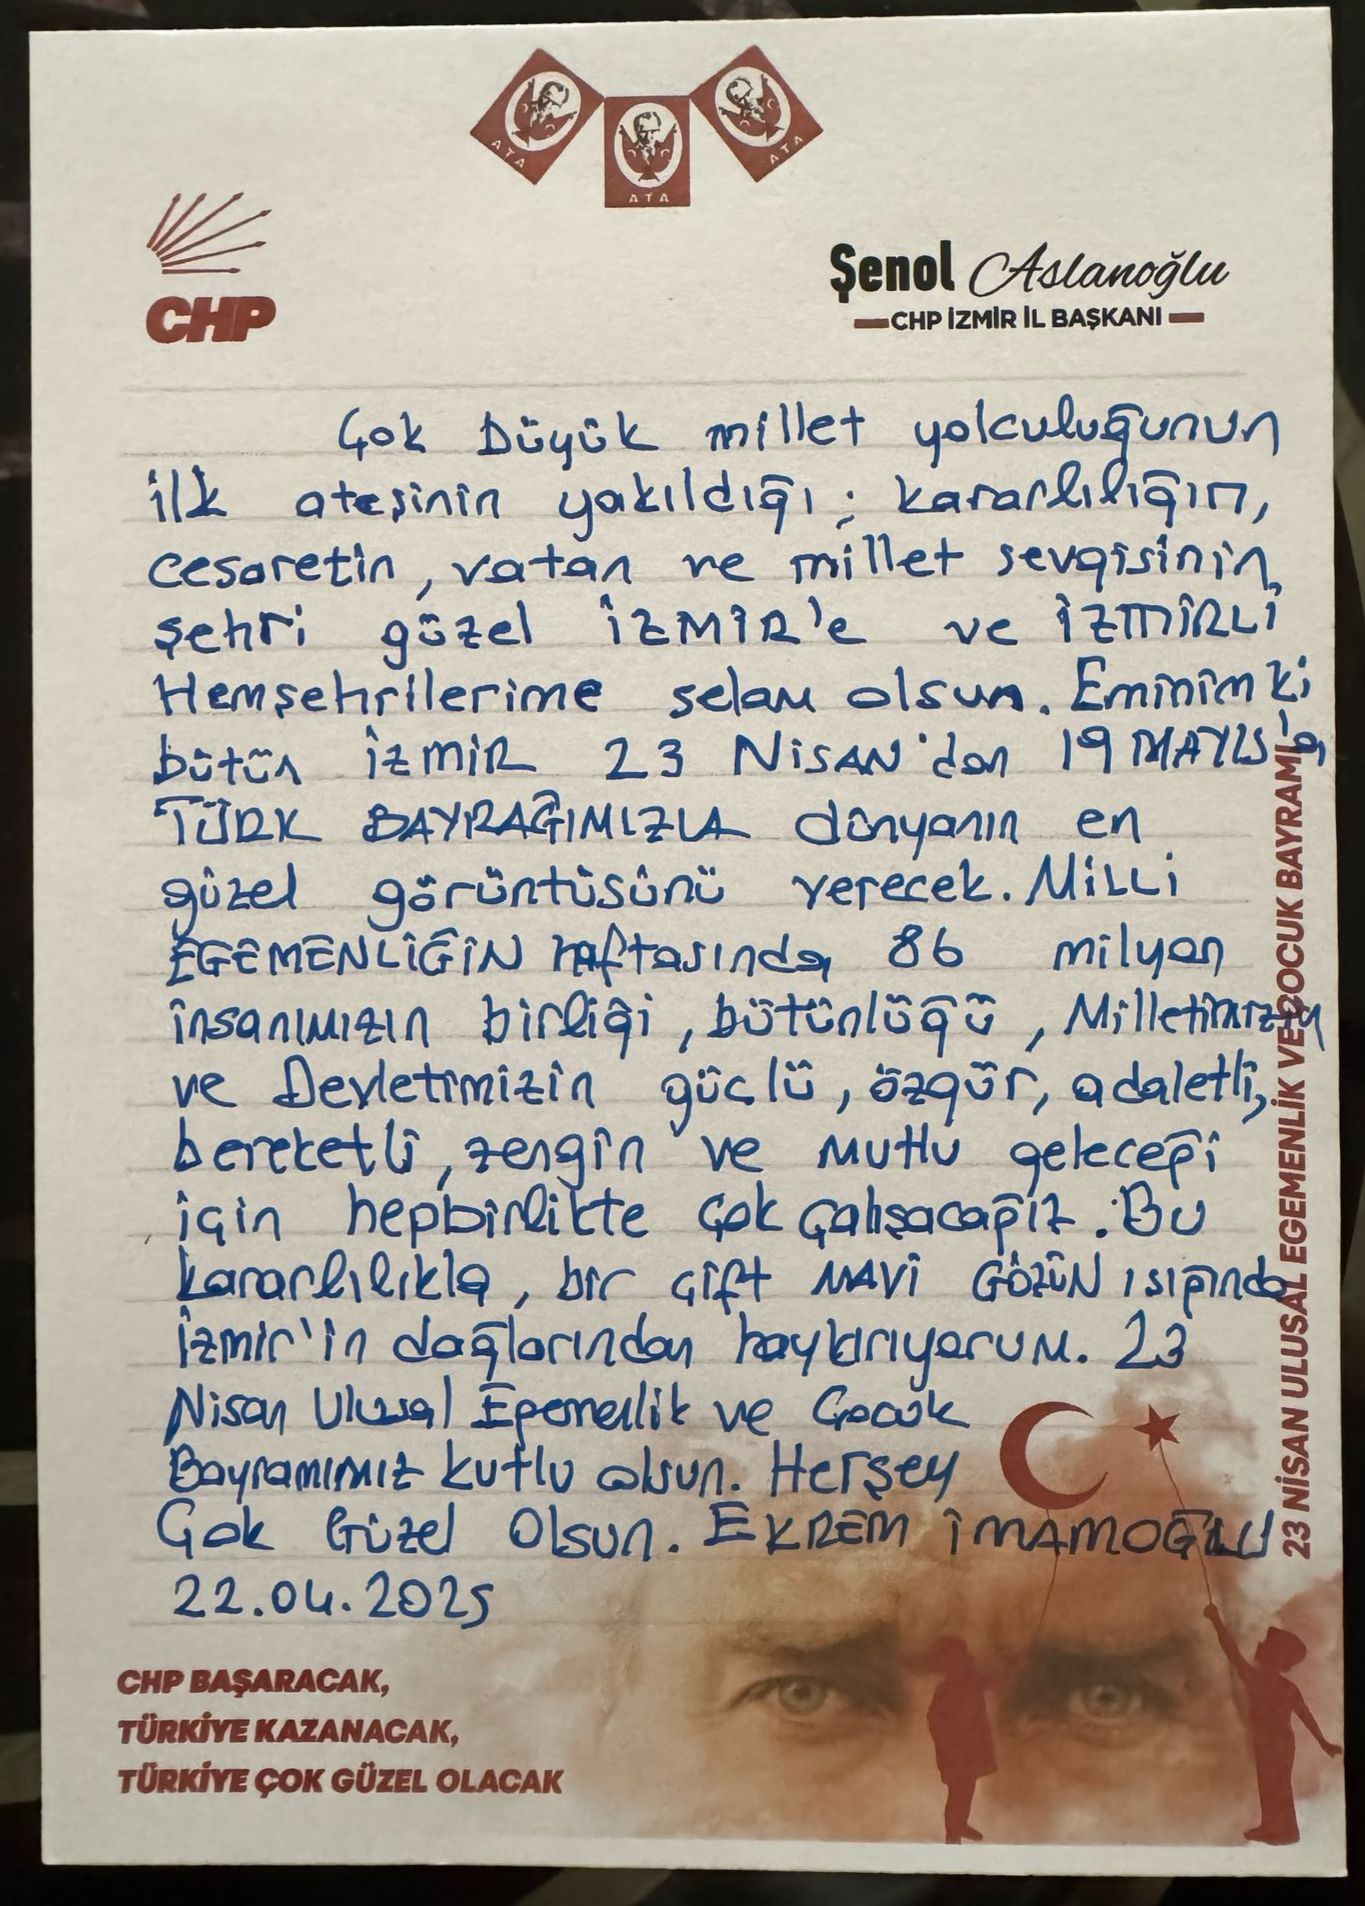 ATA ATA ATA
CHP
Şenol Aslanoğlu
CHP İZMİR İL BAŞKANI
Çok büyük millet yolculuğunun
ilk ateşinin yakıldığı; kararlılığın,
cesaretin, vatan ve millet sevgisinin,
şehri güzel İZMİR'e ve İZMİRLİ
Hemşehrilerime selam olsun. Eminim ki
bütün İZMİR 23 NİSAN'dan 19 MAYIS'a
TÜRK BAYRAĞIMIZLA dünyanın en
güzel görüntüsünü verecek. MİLLİ
EGEMENLİĞİN haftasında 86 milyon
insanımızın birliği, bütünlüğü, Milletimizin
ve Devletimizin güçlü, özgür, adaletli,
bereketli, zengin ve mutlu geleceği
için hepbirlikte çok çalışacağız. Bu
kararlılıkla, bir çift MAVİ GÖZÜN ışığında
İzmir'in dağlarından haykırıyorum. 23
Nisan Ulusal Egemenlik ve Çocuk
Bayramımız kutlu olsun. Herşey
Çok Güzel Olsun. EKREM İMAMOĞLU
22.04.2025
23 NİSAN ULUSAL EGEMENLİK VE ÇOCUK BAYRAMI
CHP BAŞARACAK,
TÜRKİYE KAZANACAK,
TÜRKİYE ÇOK GÜZEL OLACAK